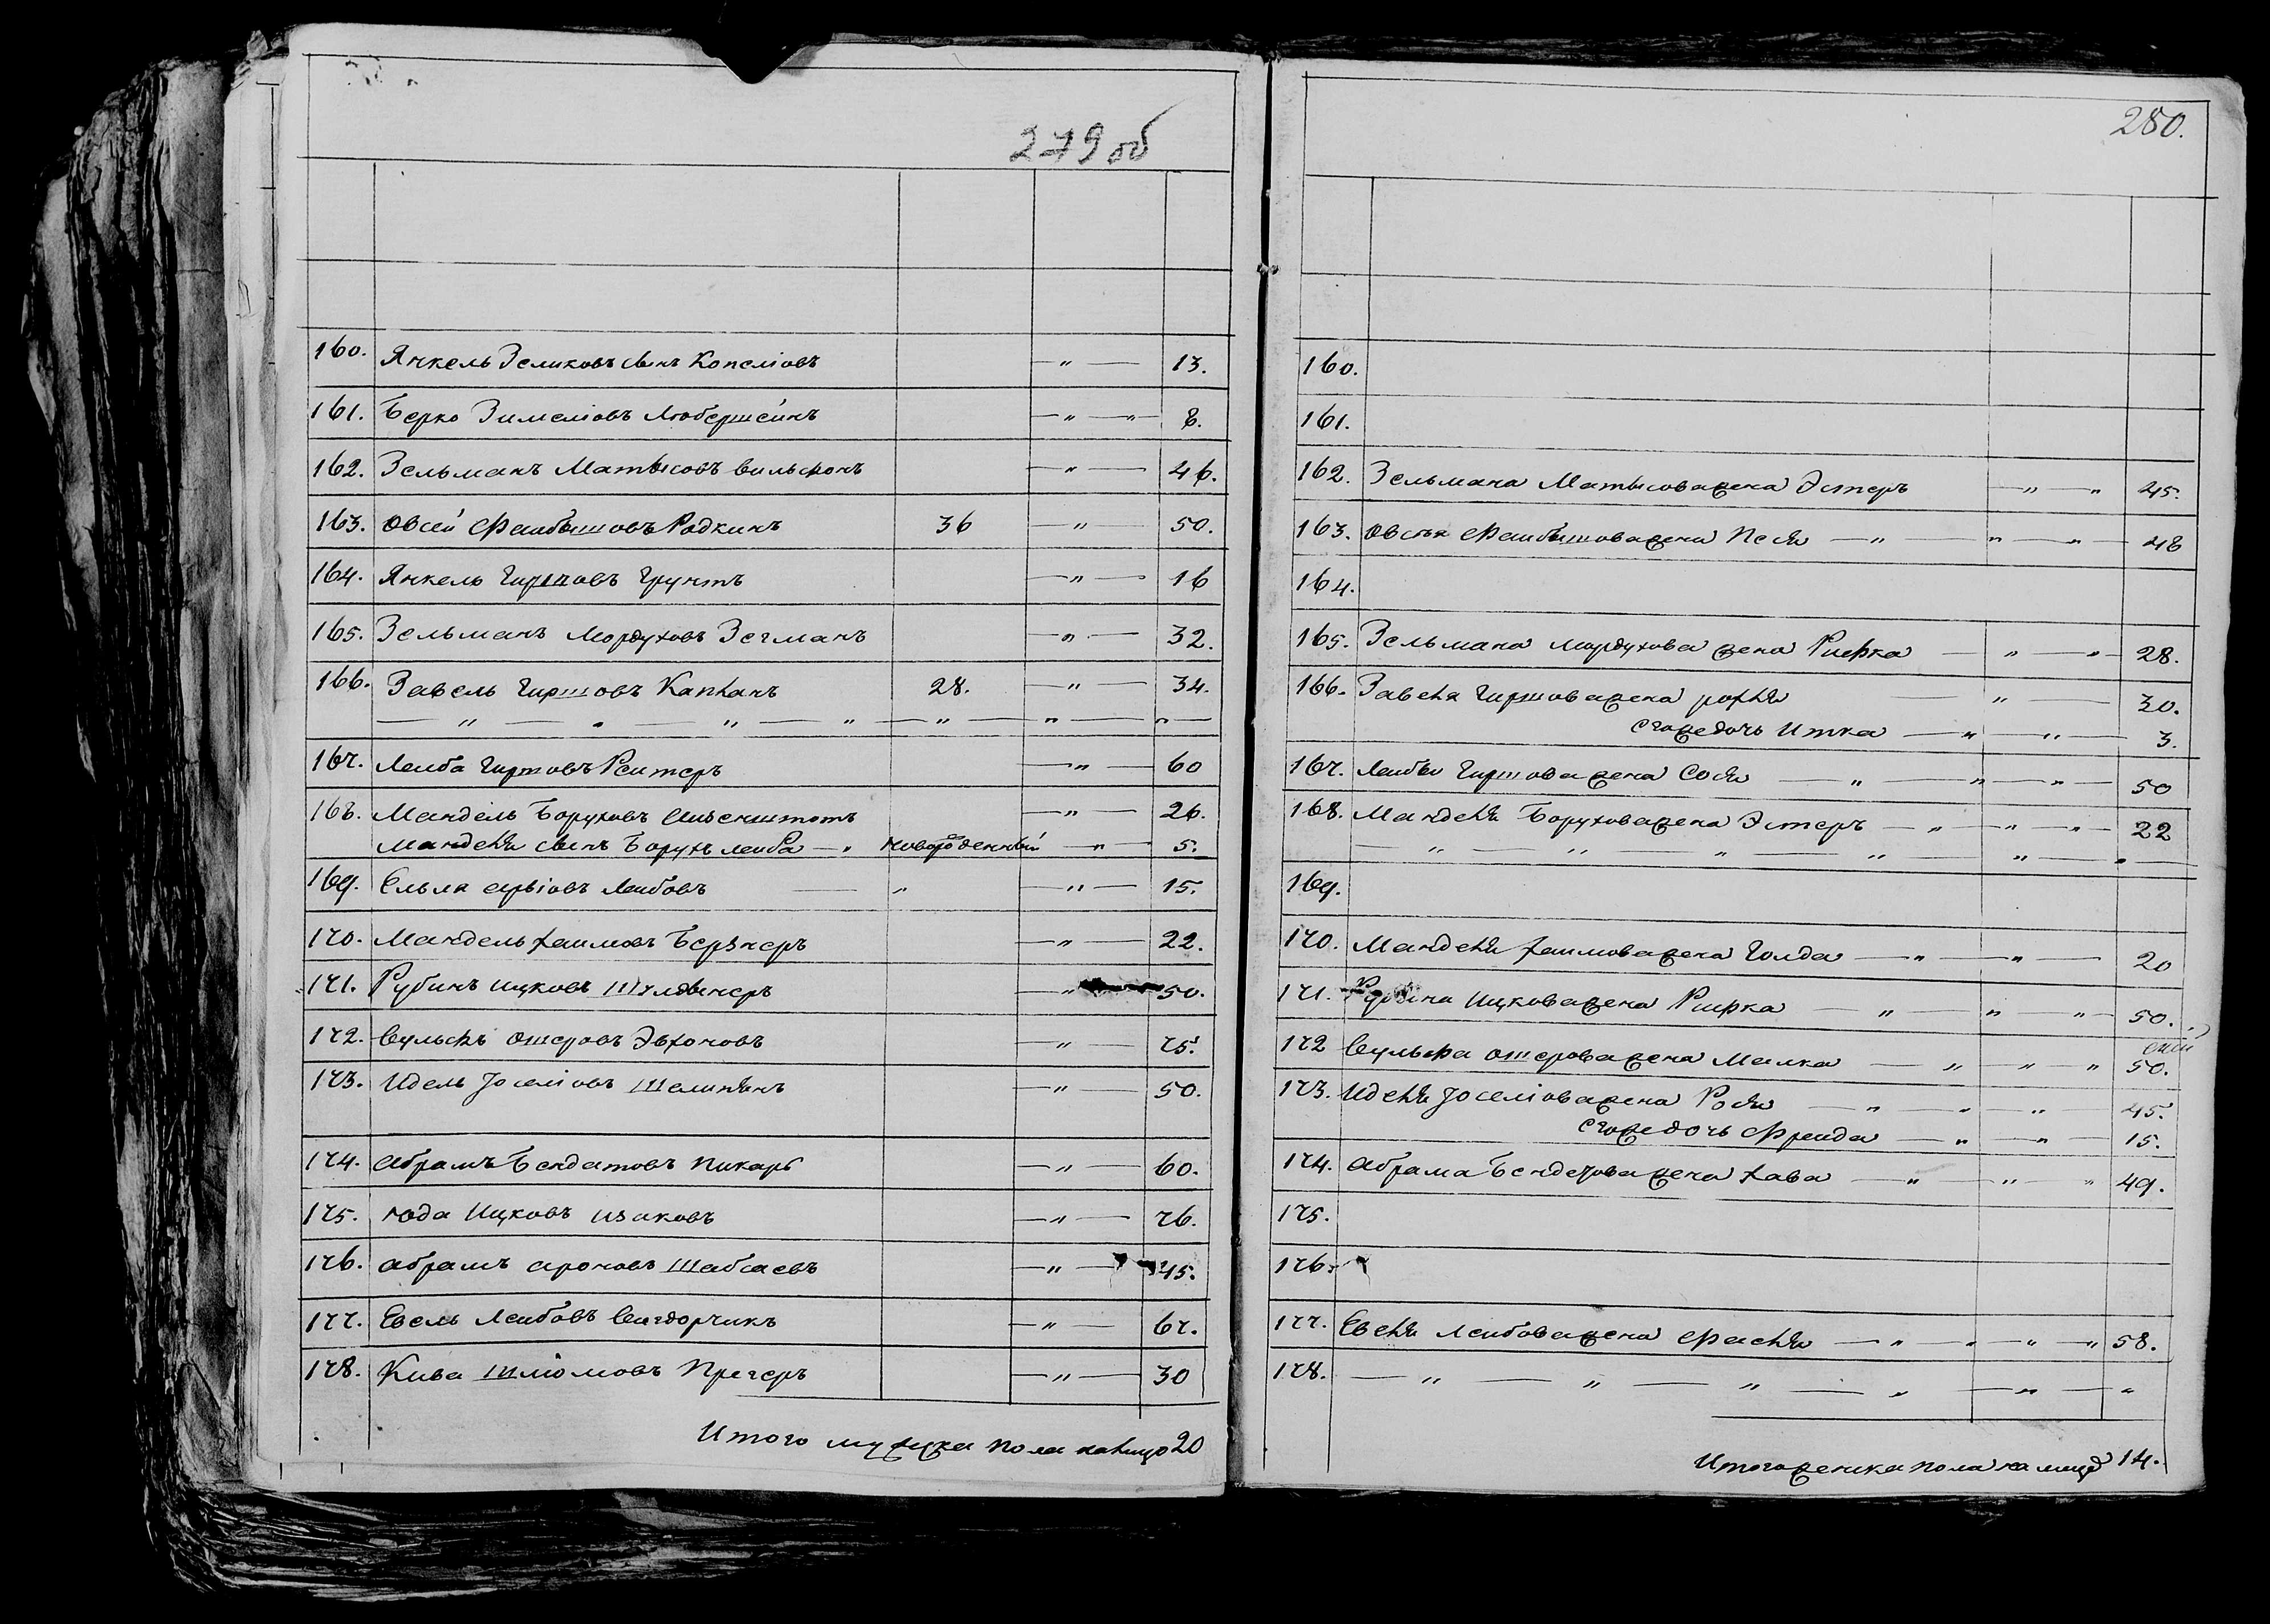 279 об
160. Янкель Зеликовъ сынъ Копеліовъ — " — 13.
161. Берко Зимеліовъ Любершеинъ — " — " — 8.
162. Зельманъ Матысовъ Вильфонъ — " — 46.
163. Овсей Фаибышовъ Радкинъ 36 " 50.
164. Янкель Гиршовъ Грунтъ — " — 16
165. Зельманъ Мордуховъ Зегманъ — " — 32.
166. Завель Гиршовъ Капланъ 28. — " — 34.
— " — " — " — " — " — " — " —
167. Леиба Гиршовъ Реитеръ — " — 60
168. Мандель Боруховъ Аизенштотъ — " — 26.
Манделя сынъ Борухъ леиба — " новорожденный " 5.
169. Ельля Арьіовъ Леибовъ — " — " — 15.
170. Мандель Хаимовъ Бергнеръ — " — 22.
171. Рубинъ Ицковъ — " 50.
172. Вульфъ Ошеровъ Эвхоновъ — " — 75.
173. Идель Іоселіовъ Шелипанъ — " — 50.
174. Абрамъ Бендетовъ Пикарь — " — 60.
175. Юда Ицковъ Изаковъ — " — 76.
176. Абрамъ Ароновъ Шабсаевъ — " — 45.
177. Евель Леибовъ Вигдорчикъ — " — 67.
178. Кива Шліомовъ Прегеръ — " — 30
Итого мужска пола налицо 20
280.
160.
161.
162. Зельмана Матысова жена Эстеръ — " — " 45.
163. Овсея Фаибышова жена Песя — " " — " — 48
164.
165. Зельмана Мордухова жена Рифка — " — " — 28.
166. Завеля Гиршова жена Рохля " — 30.
его же дочь Итка — " — " — 3.
167. Леибы Гиршова жена Сося — " — " — " — 50
168. Манделя Борухова жена Эстеръ — " — " — " — 22
" — " — " — " — " — " —
169.
170. Манделя Хаимова жена Голда — " — " — 20
171. Рубина Ицкова жена Рифка — " — " " — 50.
172 Вульфа Ошерова жена Малка — " " " 50.
173. Иделя Іоселіова жена Рося — " — " — " — 45.
его же дочь Фреида — " — " — 15.
174. Абрама Бендетова жена Хава — " — " — " 49.
175.
176.
177. Евеля Леибова жена Фасня — " — " — " — " 58.
178. — " — " — " — " — " — "
Итого женска пола на лицо 14.